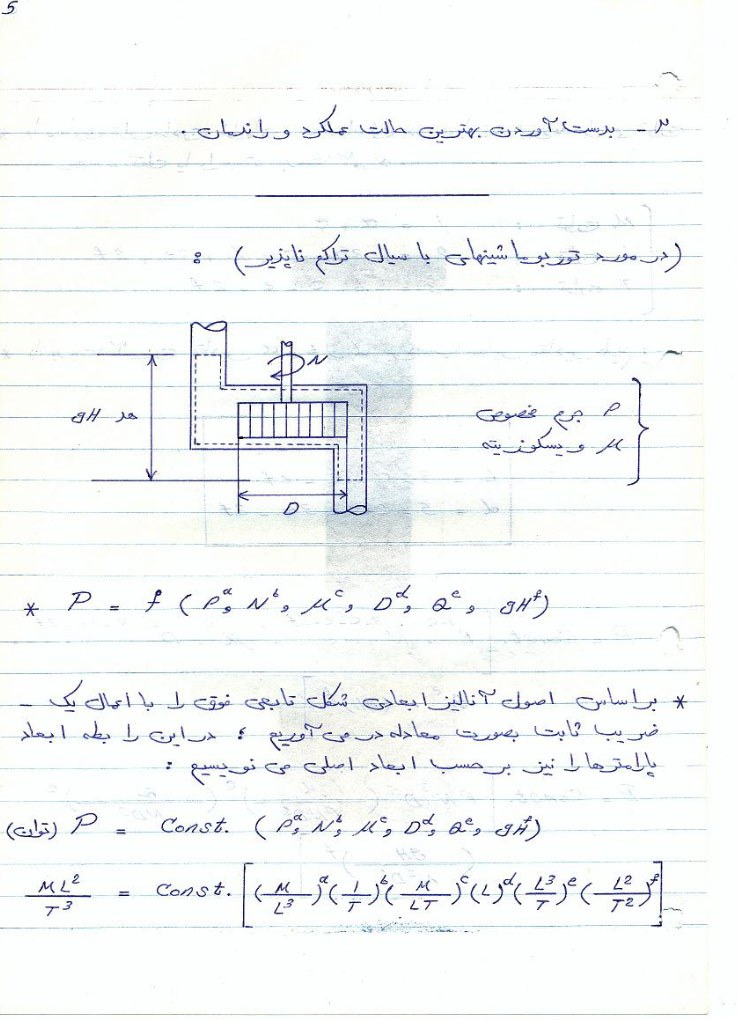 5
۲ - بدست آوردن بهترین حالت عملکرد و راندمان .
( در مورد توربوماشینهای با سیال تراکم ناپذیر ) :
N
gH هد
ρ جرم مخصوص
μ ویسکوزیته
D
* P = f ( ρᵃ, Nᵇ, μᶜ, Dᵈ, Qᵉ, gHᶠ )
* براساس اصول آنالیز ابعادی شکل تابعی فوق را با اعمال یک -
ضریب ثابت بصورت معادله در می آوریم ؛ در این رابطه ابعاد
پارامترها را نیز بر حسب ابعاد اصلی می نویسیم :
(توان) P = Const. ( ρᵃ, Nᵇ, μᶜ, Dᵈ, Qᵉ, gHᶠ )
ML²/T³ = Const. [ (M/L³)ᵃ (1/T)ᵇ (M/LT)ᶜ (L)ᵈ (L³/T)ᵉ (L²/T²)ᶠ ]